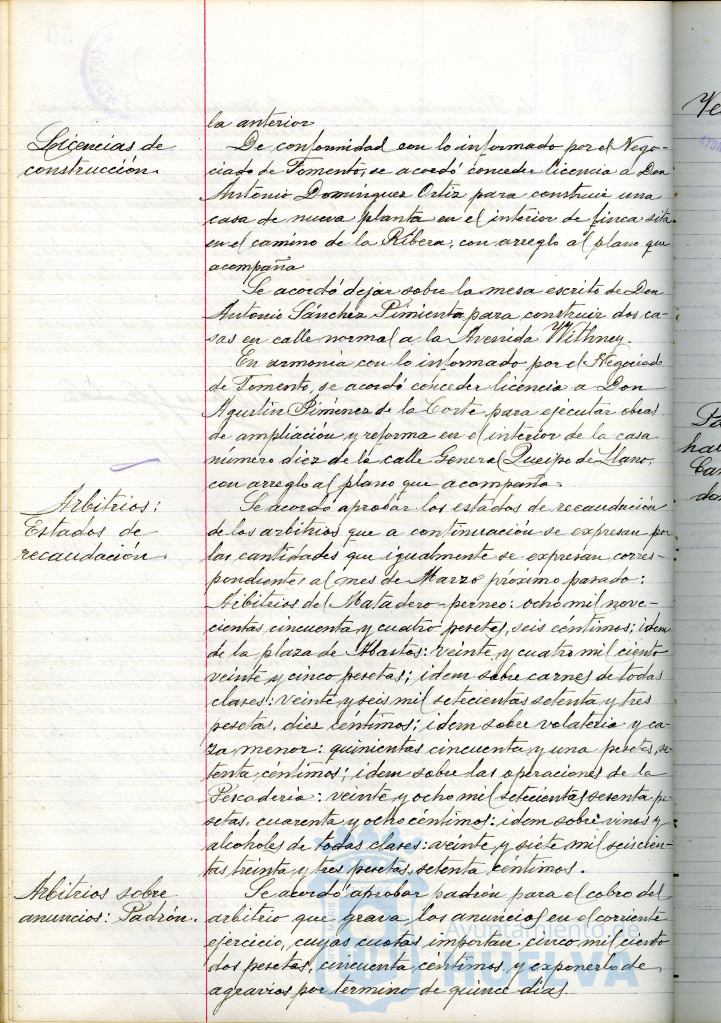 la anterior
Licencias de
construcción.
De conformidad con lo informado por el Nego-
ciado de Fomento, se acordó conceder licencia a Don
Antonio Domínguez Ortiz para construir una
casa de nueva planta en el interior de finca sita
en el camino de la Ribera, con arreglo al plano que
acompaña
Se acordó dejar sobre la mesa escrito de Don
Antonio Sánchez Pimienta para construir dos ca-
sas en calle normal a la Avenida Withney.
En armonía con lo informado por el Negociado
de Fomento, se acordó conceder licencia a Don
Agustín Jiménez de la Corte para ejecutar obras
de ampliación y reforma en el interior de la casa
número diez de la calle General Queipo de Llano,
con arreglo al plano que acompaña.
Arbitrios:
Estados de
recaudación.
Se acordó aprobar los estados de recaudación
de los arbitrios que a continuación se expresan por
las cantidades que igualmente se expresan corres-
pondientes al mes de Marzo próximo pasado:
Arbitrios del Matadero-perneo: ocho mil nove-
cientas cincuenta y cuatro pesetas, seis céntimos; idem
de la plaza de Abastos: veinte y cuatro mil ciento
veinte y cinco pesetas; idem sobre carnes de todas
clases: veinte y seis mil setecientas setenta y tres
pesetas, diez céntimos; idem sobre volatería y ca-
za menor: quinientas cincuenta y una pesetas, se-
tenta céntimos; idem sobre las operaciones de la
Pescadería: veinte y ocho mil setecientas sesenta pe-
setas, cuarenta y ocho céntimos: idem sobre vinos y
alcoholes de todas clases: veinte y siete mil seiscien-
tas treinta y tres pesetas, setenta céntimos.
Arbitrios sobre
anuncios: Padrón.
Se acordó aprobar padrón para el cobro del
arbitrio que grava los anuncios en el corriente
ejercicio, cuyas cuotas importan cinco mil ciento
dos pesetas, cincuenta céntimos, y exponerlo de
agravios por término de quince días.
Ayuntamiento de
HUELVA